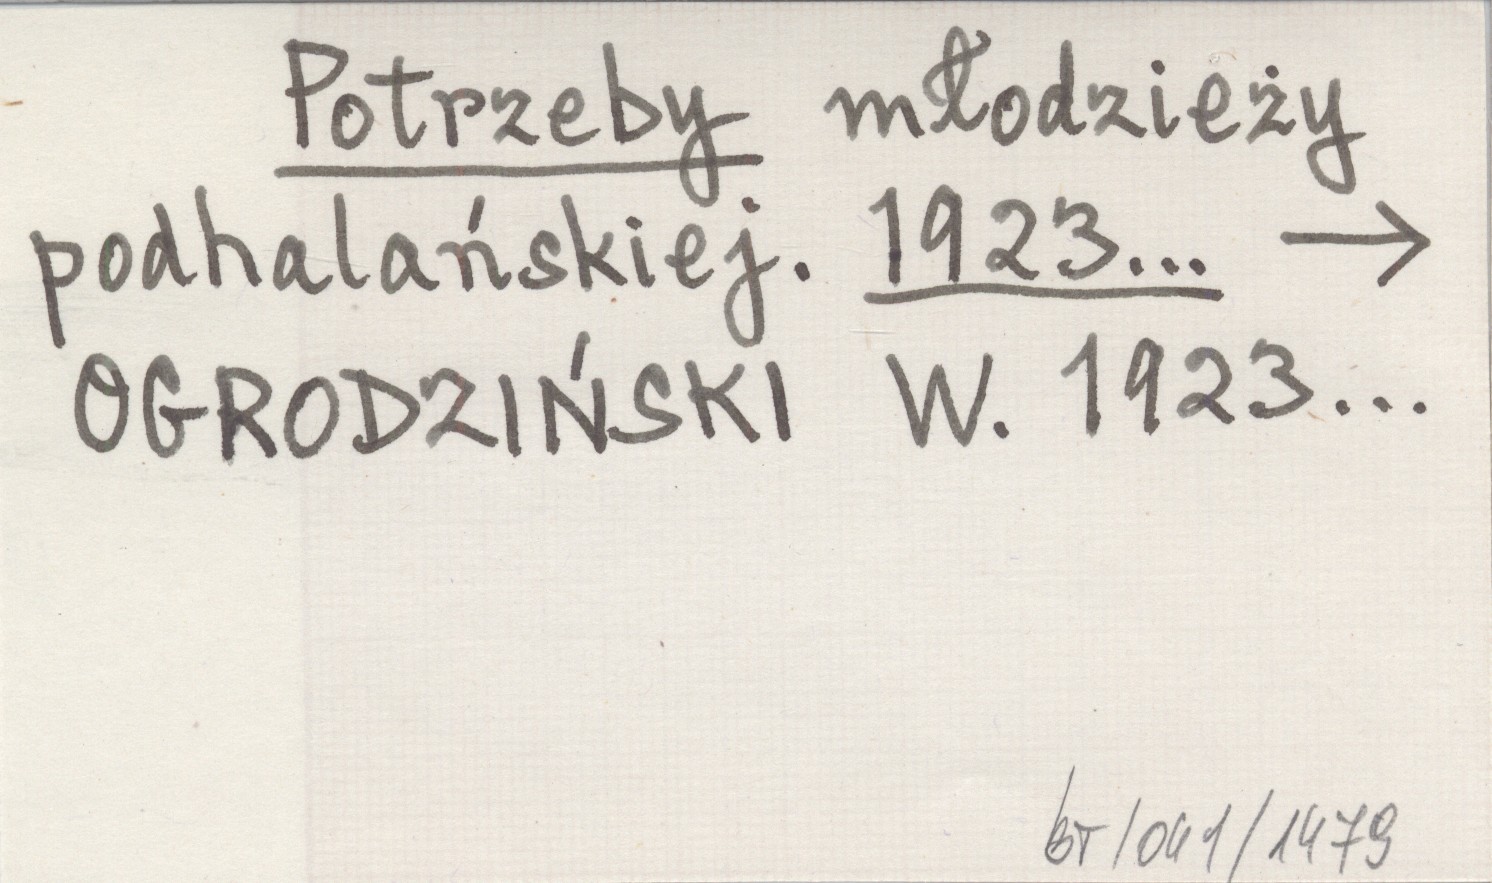 Potrzeby młodzieży
podhalańskiej. 1923... →
OGRODZIŃSKI W. 1923...
BT/041/1479